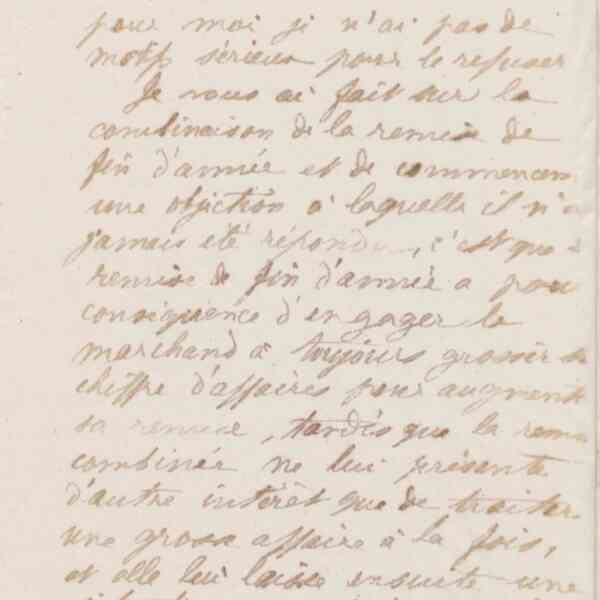 pour moi je n'ai pas de
motifs sérieux pour le refuser
Je vous ai fait sur la
combinaison de la remise de
fin d'année et de commencem
une objection à laquelle il n'a
jamais été répondu, c'est que
remise de fin d'année a pour
conséquence d'engager le
marchand à toujours grossir
chiffre d'affaires pour augmente
sa remise, tandis que la remi
combinée ne lui présente
d'autre intérêt que de traiter
une grosse affaire à la fois,
et elle lui laisse ensuite une